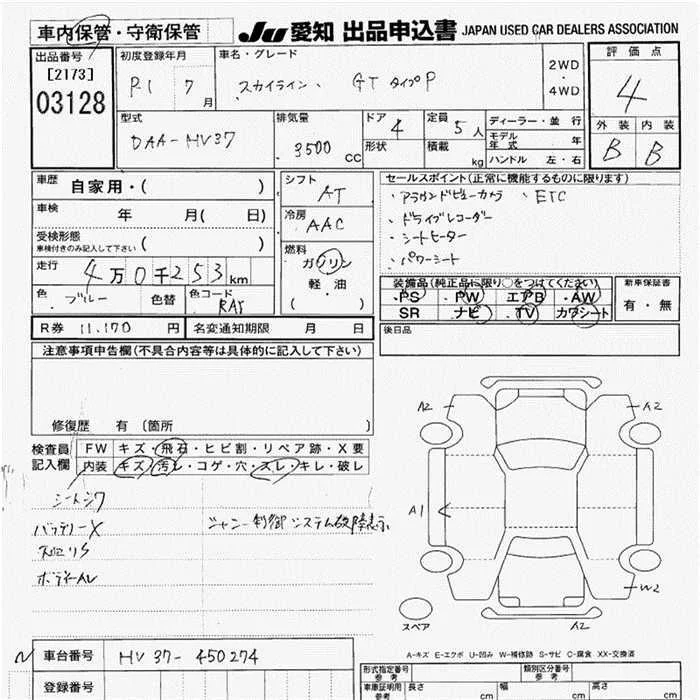 車内保管・守衛保管 JU 愛知 出品申込書 JAPAN USED CAR DEALERS ASSOCIATION
出品番号 初度登録年月 車名・グレード 評価点
[2173] 2WD
03128 R1 7月 スカイライン GT タイプP ・ 4
4WD
型式 排気量 ドア 4 定員 5人 ディーラー・並行 外装 内装
DAA-HV37 3500cc 形状 積載 kg モデル年式 年 B B
ハンドル 左・右
車歴 自家用・( ) シフト AT セールスポイント(正常に機能するものに限ります)
車検 年 月( 日) 冷房 AAC ・アラウンドビューカメラ ・ETC
受検形態 ・ドライブレコーダー
車検付きのみ記入して下さい ( ) 燃料 ・シートヒーター
走行 4万0千253km ガソリン ・パワーシート
色 ブルー 色替 色コード RAY 軽・油 ( ) 装備品(純正品に限り○をつけてください) 新車保証書
・PS ・PW ・エアB ・AW 有・無
SR ・ナビ ・TV カワシート
R券 11,170円 名変通知期限 月 日 後日品
注意事項申告欄(不具合内容等は具体的に記入して下さい)
修復歴 有 〔箇所 〕
検査員 FW キズ・飛石・ヒビ割・リペア跡・X要
記入欄 内装 キズ・汚レ・コゲ・穴・スレ・キレ・破レ
A2 A2
シートシワ
バッテリーX シャシー制御システム故障表示
A1
W2
スペア A2
A-キズ E-エクボ U-凹み W-補修跡 S-サビ C-腐食 XX-交換済
車台番号 HV37-450274
登録番号
形式指定番号 参考 類別区分番号 参考
車庫証明用 参考 長さ cm 幅 cm 高さ cm